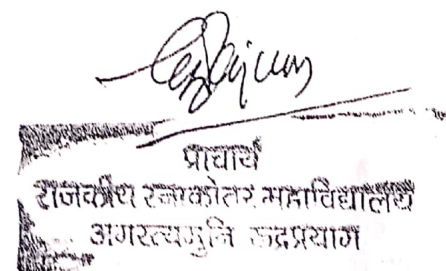 प्राचार्य
राजकीय स्नाकोतर महाविद्यालय
अगस्त्यमुनि रूद्रप्रयाग